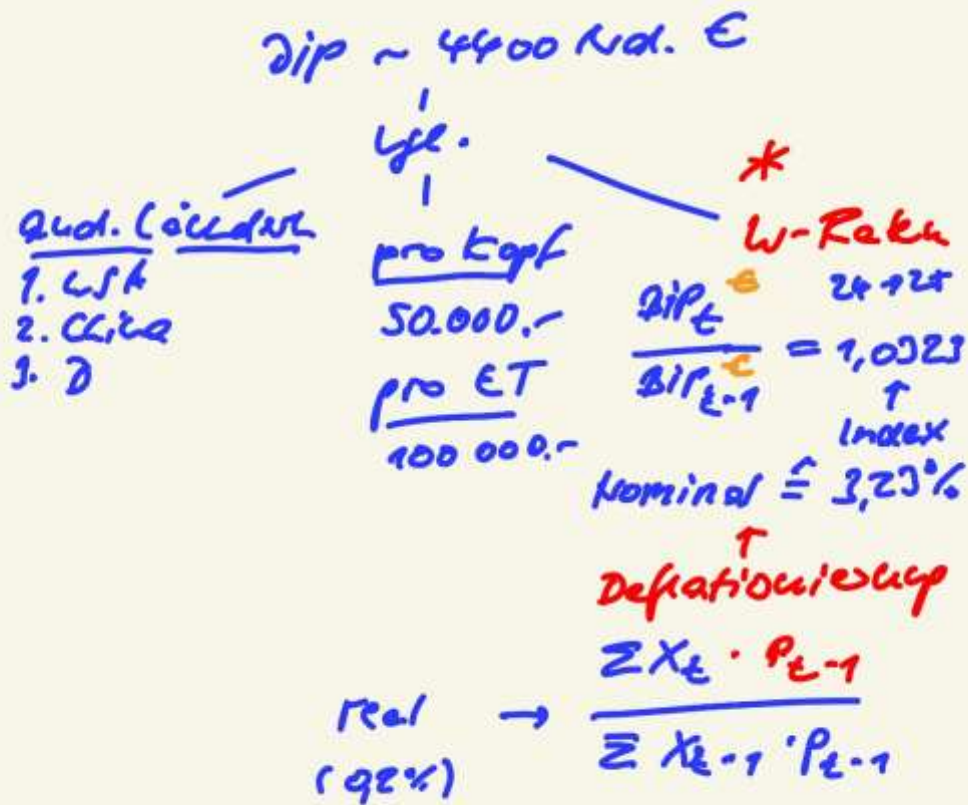 BIP ~ 4400 Mrd. €
Vgl.
and. Ländern
1. USA
2. China
3. D
pro Kopf
50.000.-
pro ET
100 000.-
*
W-Raten
24 → 25
BIP_t € / BIP_t-1 € = 1,0323
↑
Index
Nominal ≙ 3,23%
↑
Deflationierung
real (0,2%) → Σ X_t · P_t-1 / Σ X_t-1 · P_t-1